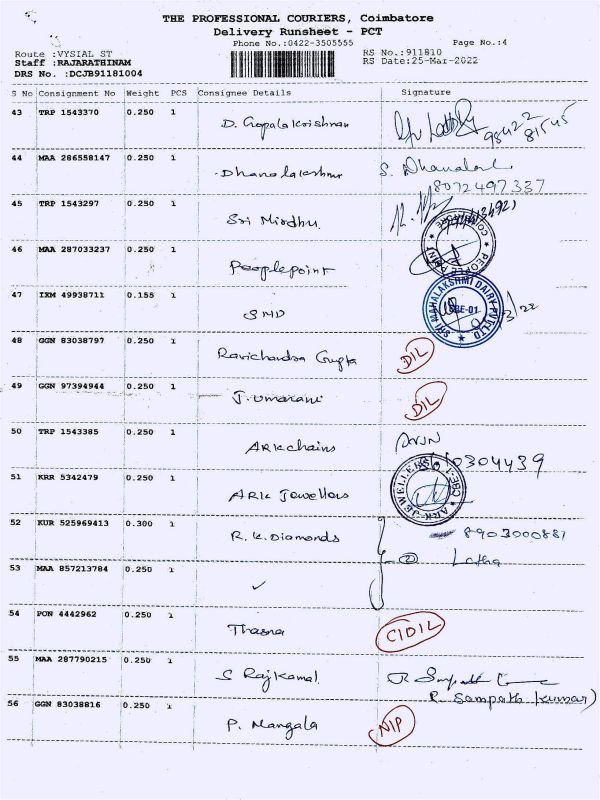 THE PROFESSIONAL COURIERS, Coimbatore
Delivery Runsheet - PCT
Phone No.:0422-3505555 Page No.:4
Route :VYSIAL ST RS No.:911810
Staff :RAJARATHINAM RS Date:25-Mar-2022
DRS No. :DCJB91181004
S No Consignment No Weight PCS Consignee Details Signature
43 TRP 1543370 0.250 1
D. Gopalakrishnan 98422
81545
44 MAA 286558147 0.250 1
Dhanalakshmi S. Dhanalak
8072497337
45 TRP 1543297 0.250 1
Sri Mirdhu
46 MAA 287033237 0.250 1
Peoplepoint PEOPLE POINT COIMBATORE
47 IXM 49938711 0.155 1
SMD SRI MAHALAKSHMI DAIRY PVT LTD CBE-01
48 GGN 83038797 0.250 1
Ravichandra Gupta DIL
49 GGN 97394944 0.250 1
J. Umarani DIL
50 TRP 1543385 0.250 1
ARK chains
51 KRR 5342479 0.250 1
ARK Jewellers ARK JEWELLERS CBE-1
52 KUR 525969413 0.300 1
R.K. Diamonds 8903000881
② Latha
53 MAA 857213784 0.250 1
✓
54 PON 4442962 0.250 1
CIDIL
55 MAA 287790215 0.250 1
S Rajkamal
R. Sampath kumar)
56 GGN 83038816 0.250 1
P. Mangala NIP